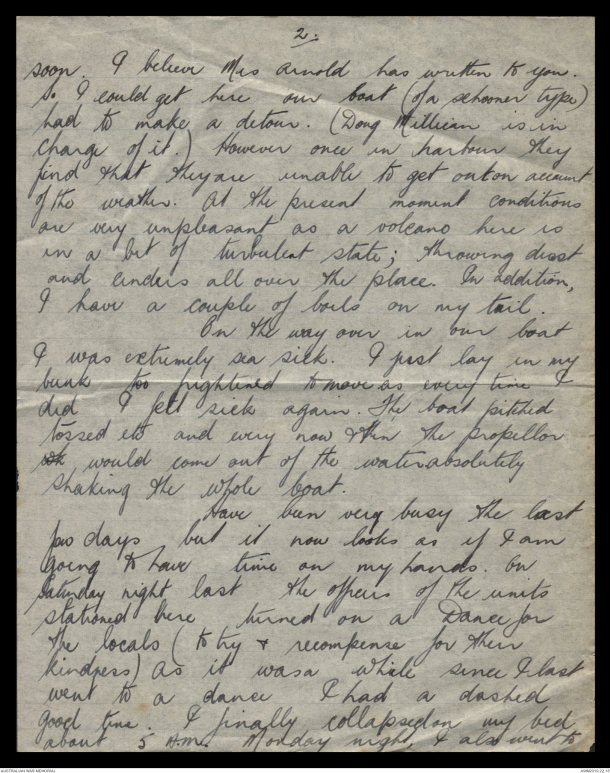 2.
soon. I believe Mrs Arnold has written to you.
So I could get here our boat (of a schooner type)
had to make a detour. (Doug Millican is in
charge of it.) However once in harbour they
find that they are unable to get out on account
of the weather. At the present moment conditions
are very unpleasant as a volcano here is
in a bit of turbulent state; throwing dust
and cinders all over the place. In addition,
I have a couple of boils on my tail.
On the way over in our boat
I was extremely sea sick. I just lay in my
bunk too frightened to move as every time I
did I felt sick again. The boat pitched
tossed etc and every now & then the propellor
would come out of the water absolutely
shaking the whole boat.
Have been very busy the last
few days but it now looks as if I am
going to have time on my hands. On
Saturday night last the officers of the units
stationed here turned on a Dance for
the locals (to try & recompense for their
kindness) As it was a while since I last
went to a dance I had a dashed
good time. I finally collapsed on my bed
about 5 A.M. Monday night, I also went to
AUSTRALIAN WAR MEMORIAL